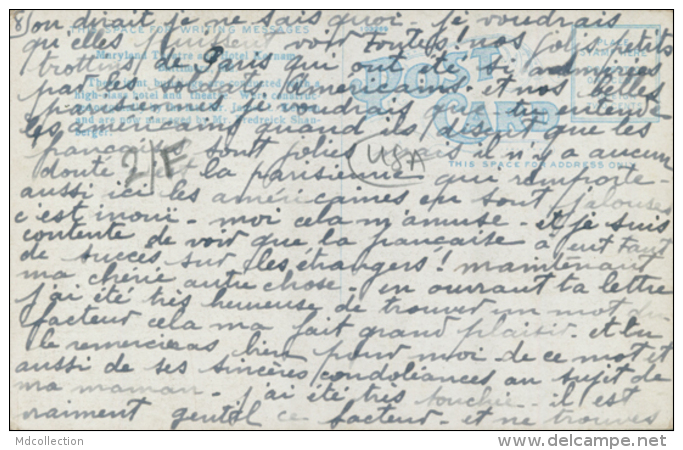 8) on dirait je ne sais quoi - je voudrais
THIS SPACE FOR WRITING MESSAGES
qu'elles puissent voir toutes! nos jolis petits
Maryland Theatre Hotel Kernan
trottins de Paris qui ont été si admirées
POST CARD
par les soldats américains - et nos belles
parisiennes je voudrais que tu entendes
les américains quand ils disent que les
and are now managed by Mr. Fredrick Shan-
berger.
françaises sont jolies mais il n'y a aucun
2/F
USA
THIS SPACE FOR ADDRESS ONLY
doute c'est la parisienne qui remporte -
aussi ici les américaines en sont jalouses
c'est inoui - moi cela m'amuse - et je suis
contente de voir que la française a eut tant
de succes sur les étrangers! maintenant
ma chérie autre chose - en ouvrant ta lettre
j'ai été très heureuse de trouver un mot du
facteur cela ma fait grand plaisir - et tu
le remercieras bien pour moi - de ce mot et
aussi de ses sincères condoléances au sujet de
ma maman - j'ai été très touchée - il est
vraiment gentil ce facteur - et ne trouves
Mdcollection
www.delcampe.net